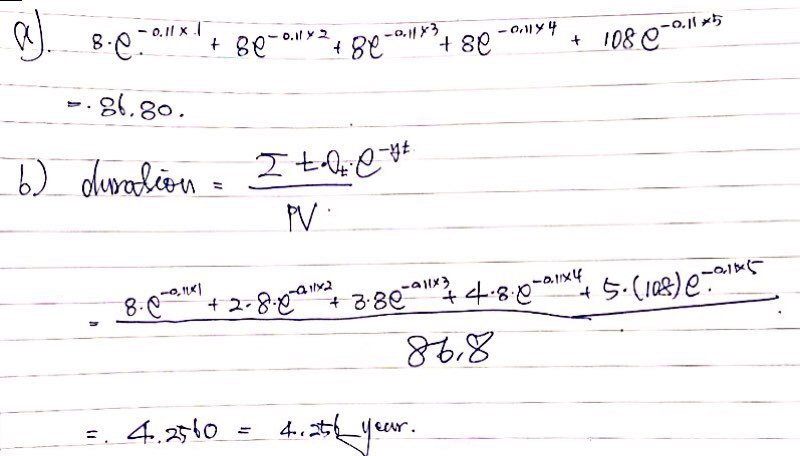 a). 8·e^-0.11×1 + 8e^-0.11×2 + 8e^-0.11×3 + 8e^-0.11×4 + 108e^-0.11×5
= 86.80.
b) duration = Σ t·C_t·e^-yt / PV
= 8·e^-0.11×1 + 2·8·e^-0.11×2 + 3·8e^-0.11×3 + 4·8·e^-0.11×4 + 5·(108)e^-0.11×5 / 86.8
= 4.2560 = 4.256 year.